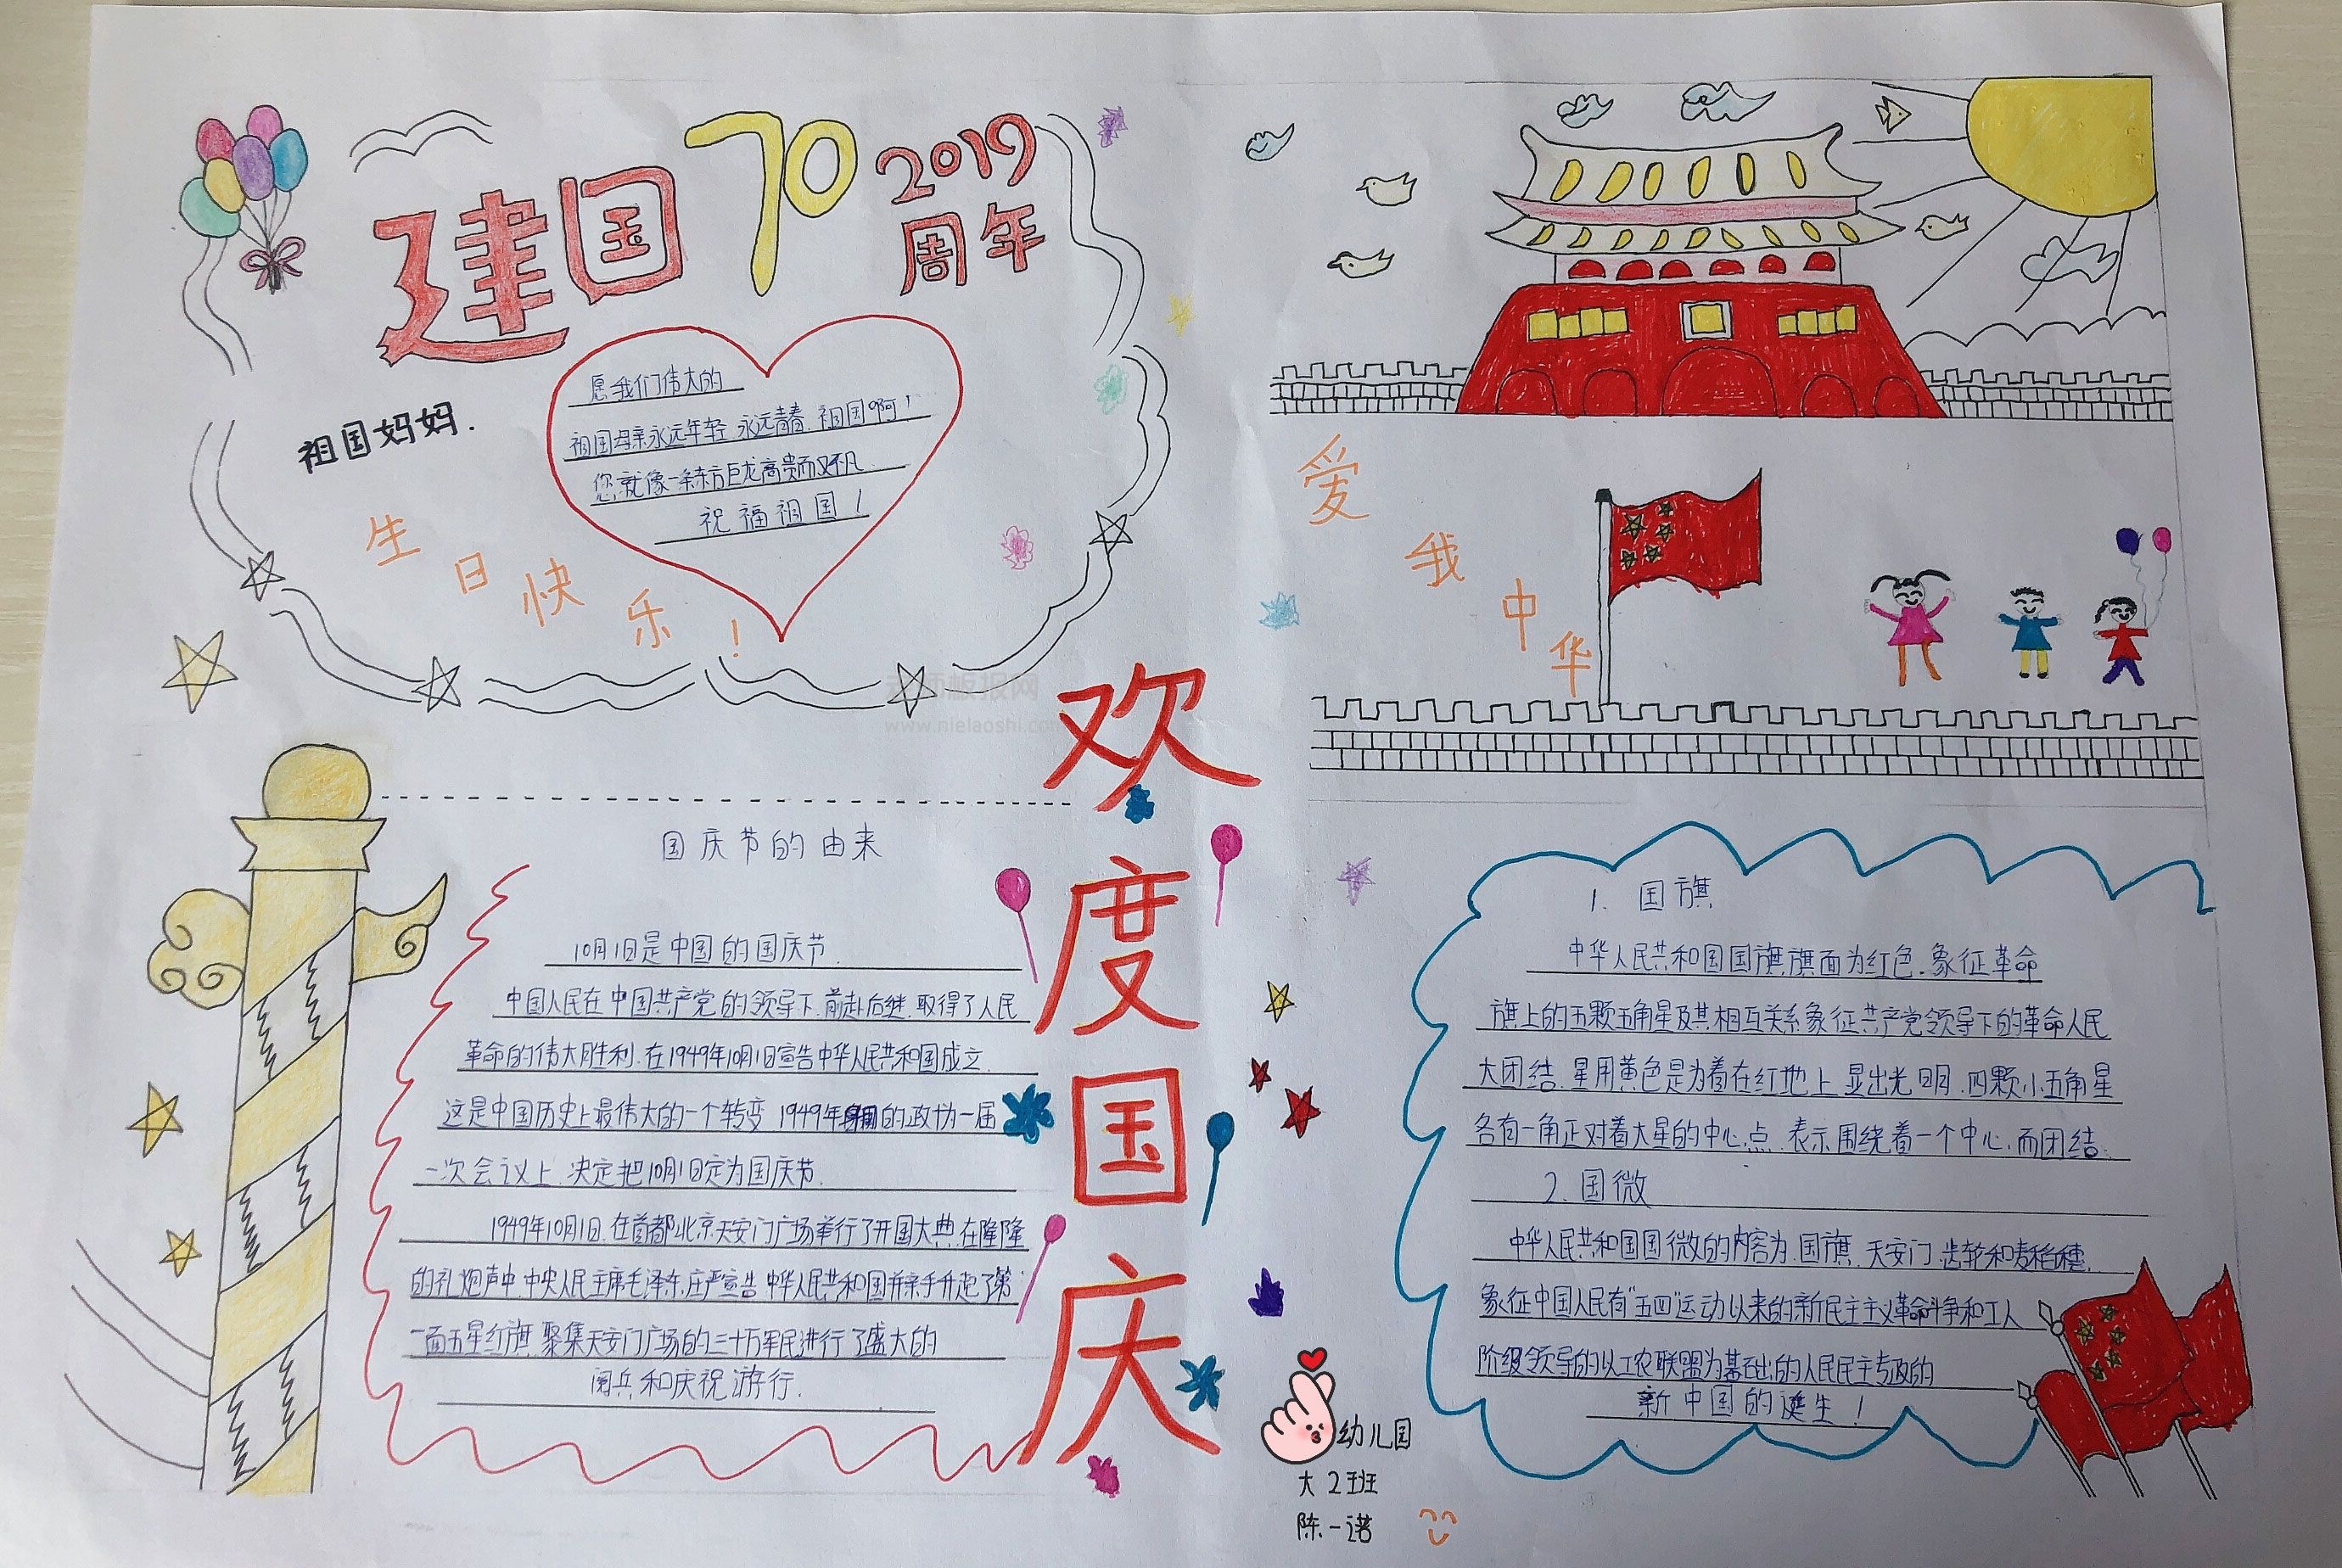 建国70 2019
周年
愿我们伟大的
祖国母亲永远年轻 永远青春.祖国啊!
您就像一条东方巨龙高贵而又不凡.
祝福祖国!
祖国妈妈.
生日快乐!
爱我中华
欢度国庆
国庆节的由来
10月1日是中国的国庆节.
中国人民在中国共产党的领导下.前赴后继.取得了人民
革命的伟大胜利.在1949年10月1日宣告中华人民共和国成立.
这是中国历史上最伟大的一个转变 1949年 的政协一届
一次会议上.决定把10月1日定为国庆节.
1949年10月1日.在首都北京天安门广场举行了开国大典.在隆隆
的礼炮声中.中央人民主席毛泽东.庄严宣告 中华人民共和国并亲手升起了第
一面五星红旗.聚集天安门广场的三十万军民进行了盛大的
阅兵和庆祝游行.
1. 国旗
中华人民共和国国旗旗面为红色.象征革命
旗上的五颗五角星及其相互关系象征共产党领导下的革命人民
大团结.星用黄色是为着在红地上显出光明.四颗小五角星
各有一角正对着大星的中心点.表示围绕着一个中心.而团结.
2. 国微
中华人民共和国国微的内容为.国旗.天安门.齿轮和麦稻穗.
象征中国人民有"五四"运动以来的新民主主义革命斗争和工人
阶级领导的以工农联盟为基础的人民民主专政的
新中国的诞生!
幼儿园
大2班
陈一诺
老师板报网
www.nielaoshi.com